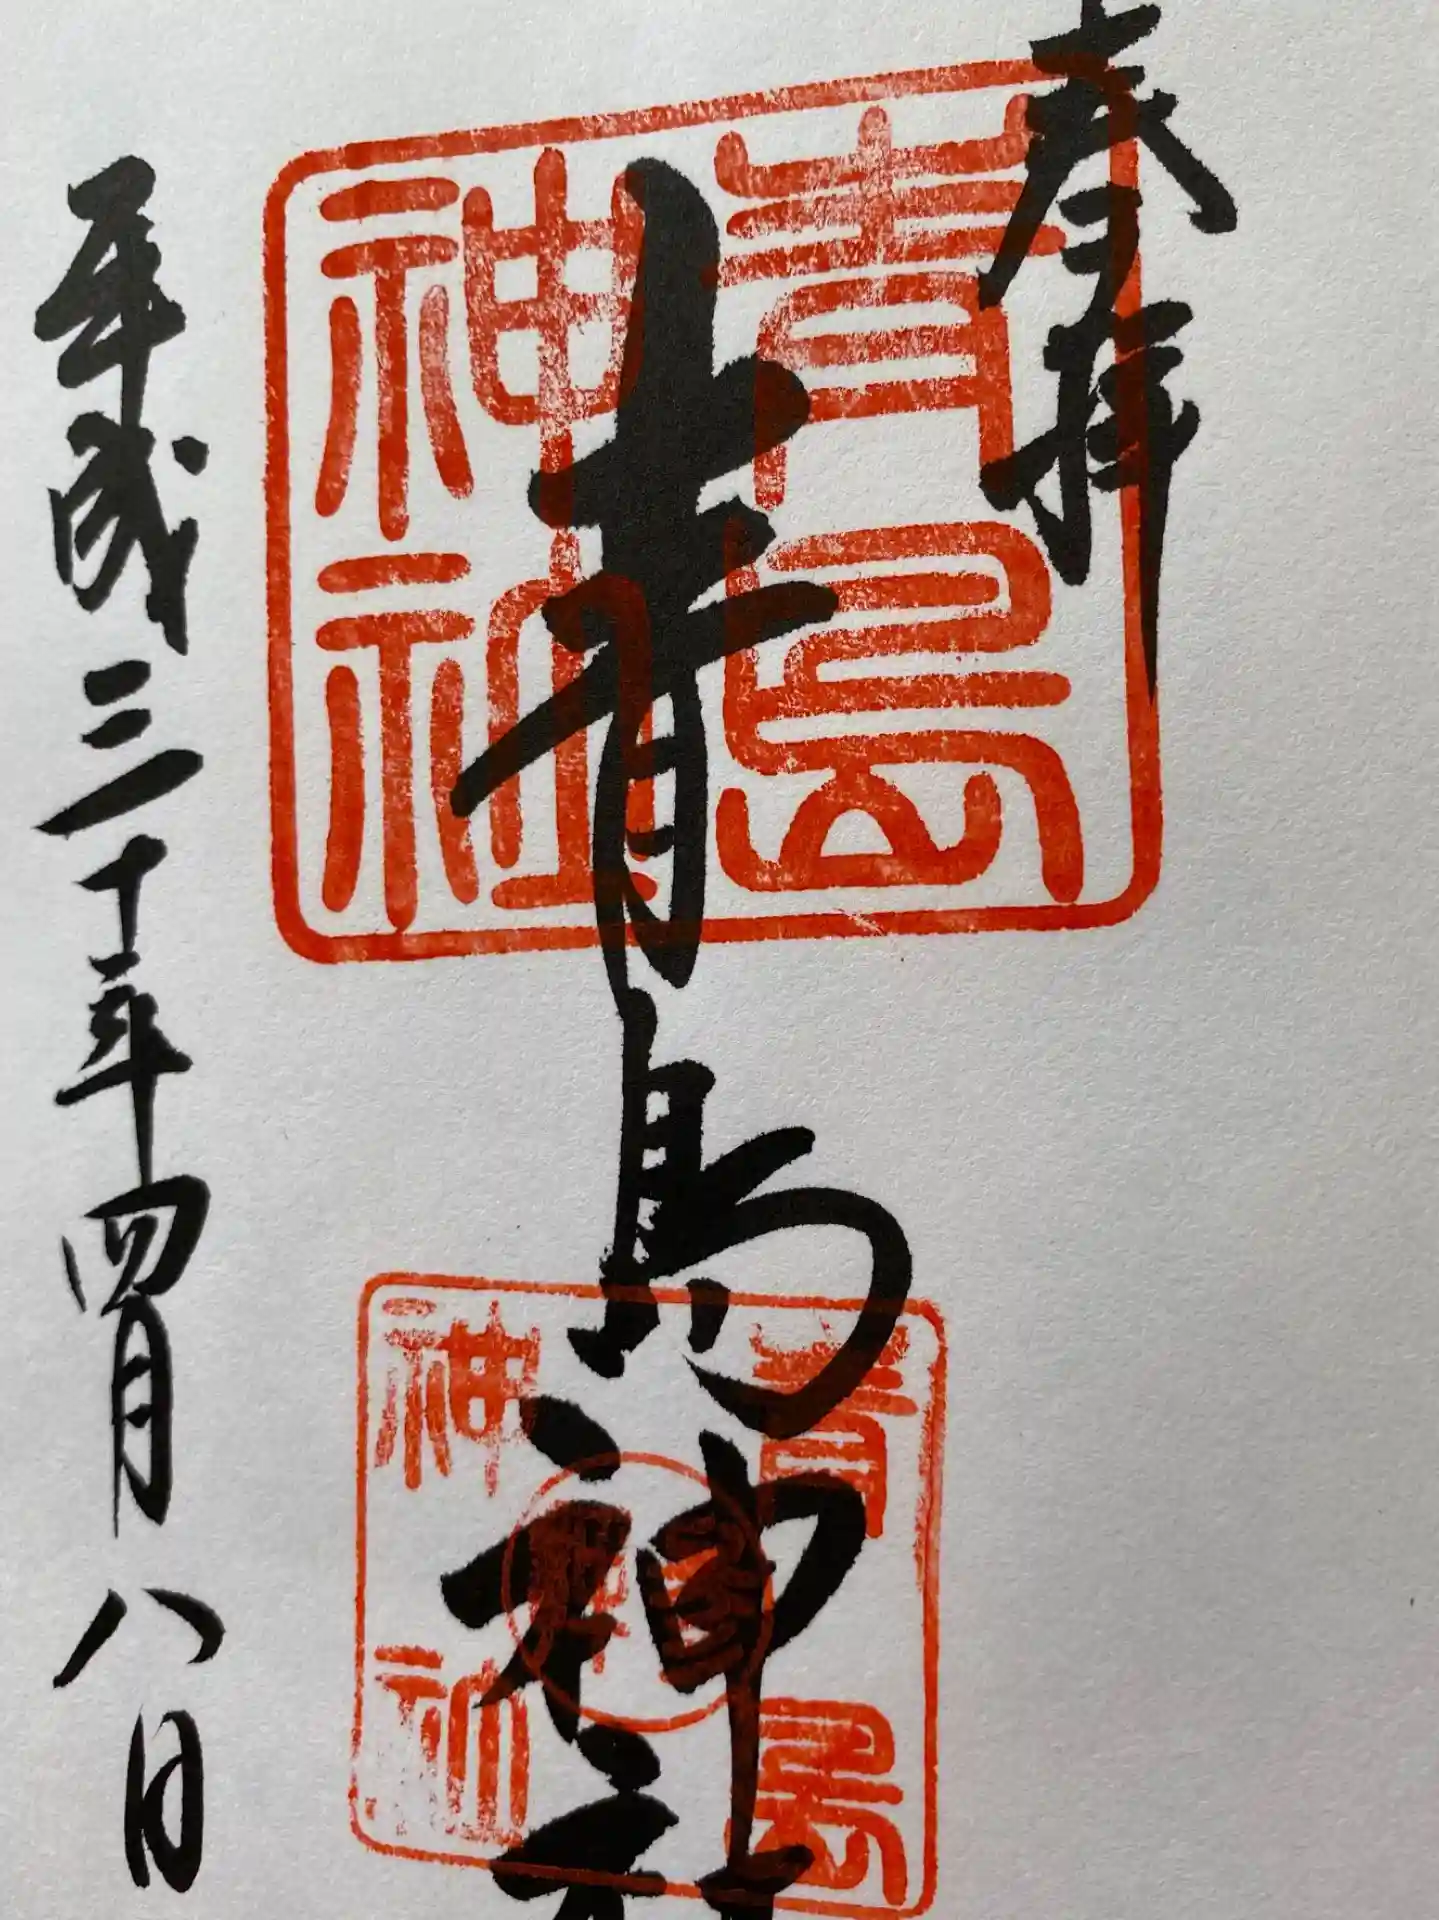 奉拝
青島
神社
青島神社
青島
神社
平成三十年四月八日